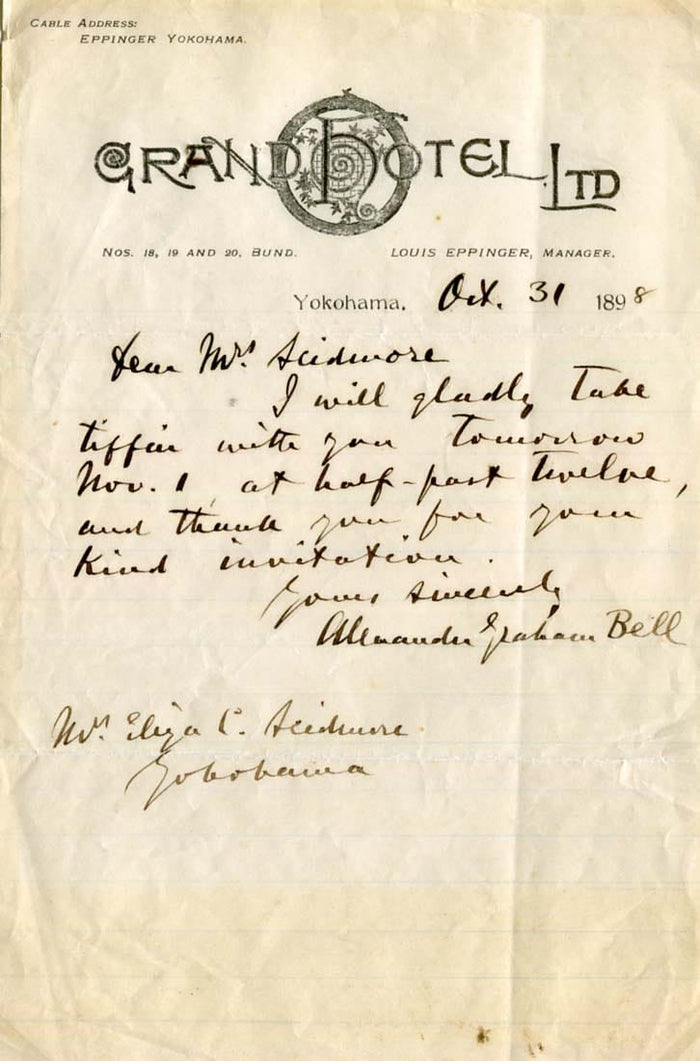 CABLE ADDRESS:
EPPINGER YOKOHAMA.
GRAND HOTEL LTD
NOS. 18, 19 AND 20, BUND. LOUIS EPPINGER, MANAGER.
Yokohama, Oct. 31 1898
Dear Mrs Scidmore
I will gladly take
tiffin with you tomorrow
Nov. 1 at half-past twelve,
and thank you for your
kind invitation.
Yours sincerely
Alexander Graham Bell
Mrs Eliza C. Scidmore
Yokohama